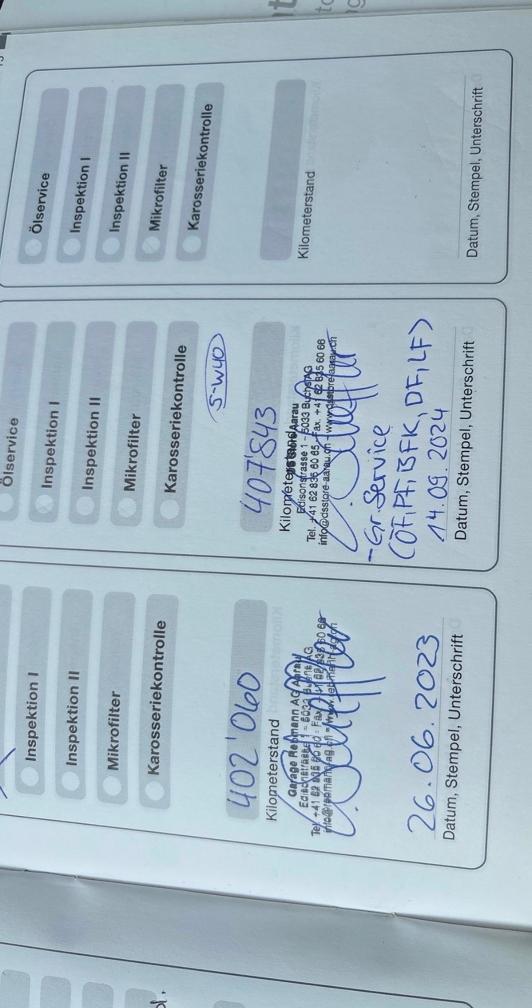 Inspektion I
Inspektion II
Mikrofilter
Karosseriekontrolle
402'060
Kilometerstand
Garage Rebmann AG Aarau
Edisonstrasse 1 - 5033 Buchs AG
26.06.2023
Datum, Stempel, Unterschrift
Ölservice
Inspektion I
Inspektion II
Mikrofilter
Karosseriekontrolle
5-W40
407'843
Kilometerstand
Aarau
Edisonstrasse 1 - 5033 Buchs AG
Tel. +41 62 835 60 65 Fax. +41 62 835 60 66
info@dsstore-aarau.ch - www.dsstore-aarau.ch
-Gr. Service
(ÖF, PF, BFK, DF, LF)
14.09.2024
Datum, Stempel, Unterschrift
Ölservice
Inspektion I
Inspektion II
Mikrofilter
Karosseriekontrolle
Kilometerstand
Datum, Stempel, Unterschrift